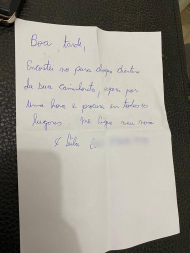 Boa tarde,
Encostei no para choque dentro
da sua caminhonte, esperei por
uma hora e procurei em todos os
lugares. me ligue meu nome
é